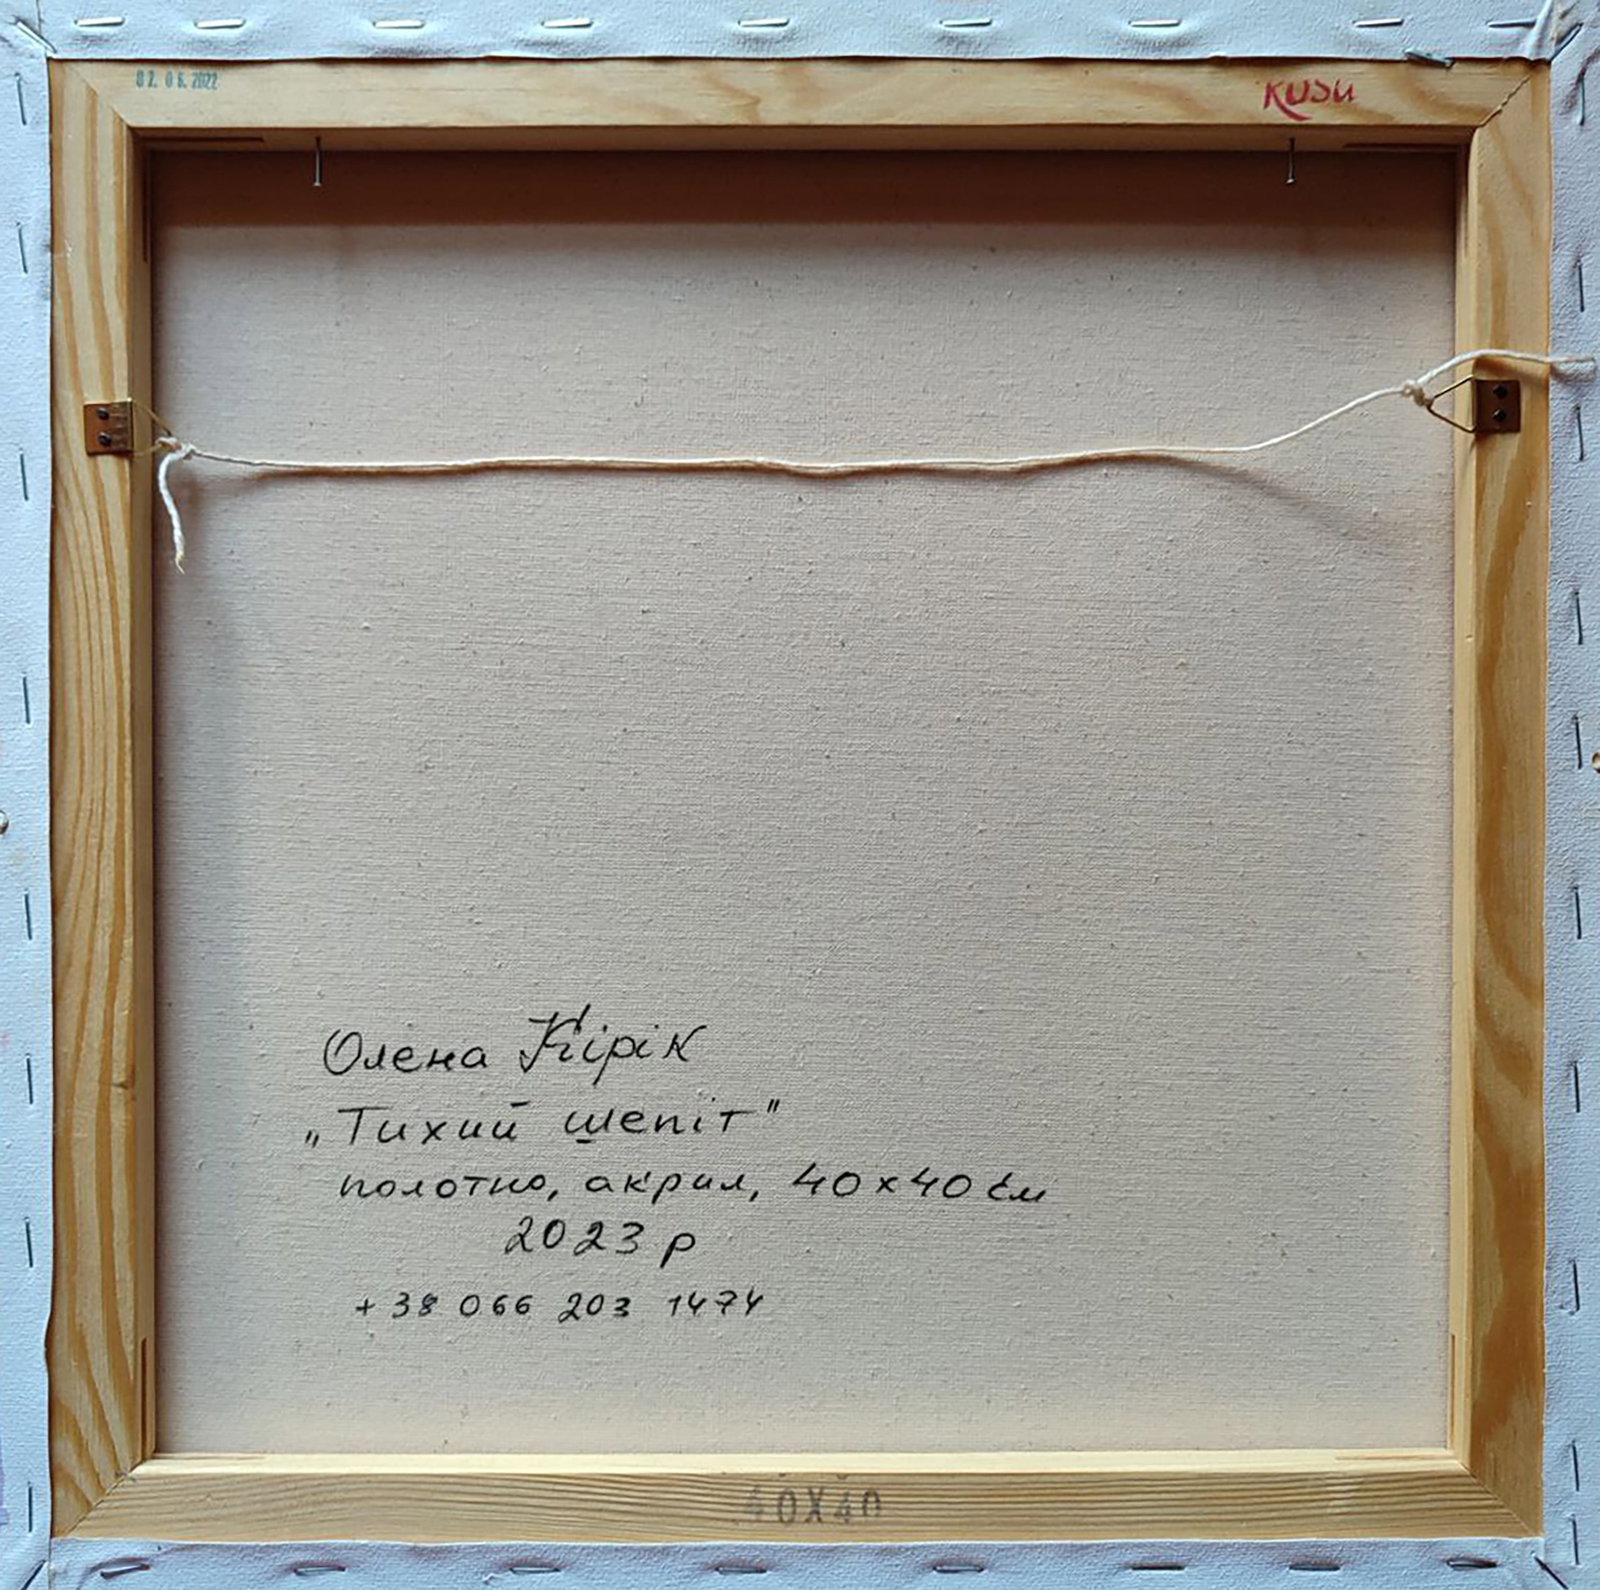 02. 06. 2022
Олена Кірік
„Тихий шепіт"
полотно, акрил, 40х40 см
2023 р
+38 066 203 1474
40X40